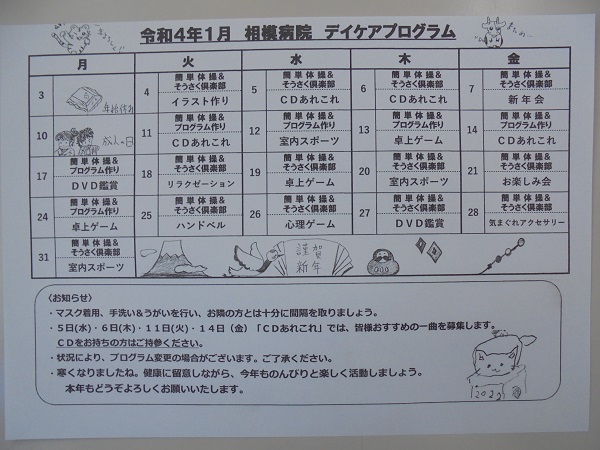 令和4年1月 相模病院 デイケアプログラム
月 火 水 木 金
3
4 簡単体操&
そうさく倶楽部
イラスト作り
5 簡単体操&
そうさく倶楽部
CDあれこれ
6 簡単体操&
そうさく倶楽部
CDあれこれ
7 簡単体操&
そうさく倶楽部
新年会
10 成人の日
11 簡単体操&
プログラム作り
CDあれこれ
12 簡単体操&
プログラム作り
室内スポーツ
13 簡単体操&
プログラム作り
卓上ゲーム
14 簡単体操&
プログラム作り
CDあれこれ
17 簡単体操&
プログラム作り
DVD鑑賞
18 簡単体操&
そうさく倶楽部
リラクゼーション
19 簡単体操&
そうさく倶楽部
卓上ゲーム
20 簡単体操&
そうさく倶楽部
室内スポーツ
21 簡単体操&
そうさく倶楽部
お楽しみ会
24 簡単体操&
プログラム作り
卓上ゲーム
25 簡単体操&
そうさく倶楽部
ハンドベル
26 簡単体操&
そうさく倶楽部
心理ゲーム
27 簡単体操&
そうさく倶楽部
DVD鑑賞
28 簡単体操&
そうさく倶楽部
気まぐれアクセサリー
31 簡単体操&
そうさく倶楽部
室内スポーツ
謹賀
新年
《お知らせ》
・マスク着用、手洗い&うがいを行い、お隣の方とは十分に間隔を取りましょう。
・5日(水)・6日(木)・11日(火)・14日(金)「CDあれこれ」では、皆様おすすめの一曲を募集します。
CDをお持ちの方はご持参ください。
・状況により、プログラム変更の場合がございます。ご了承ください。
・寒くなりましたね。健康に留意しながら、今年ものんびりと楽しく活動しましょう。
本年もどうぞよろしくお願いいたします。
2022